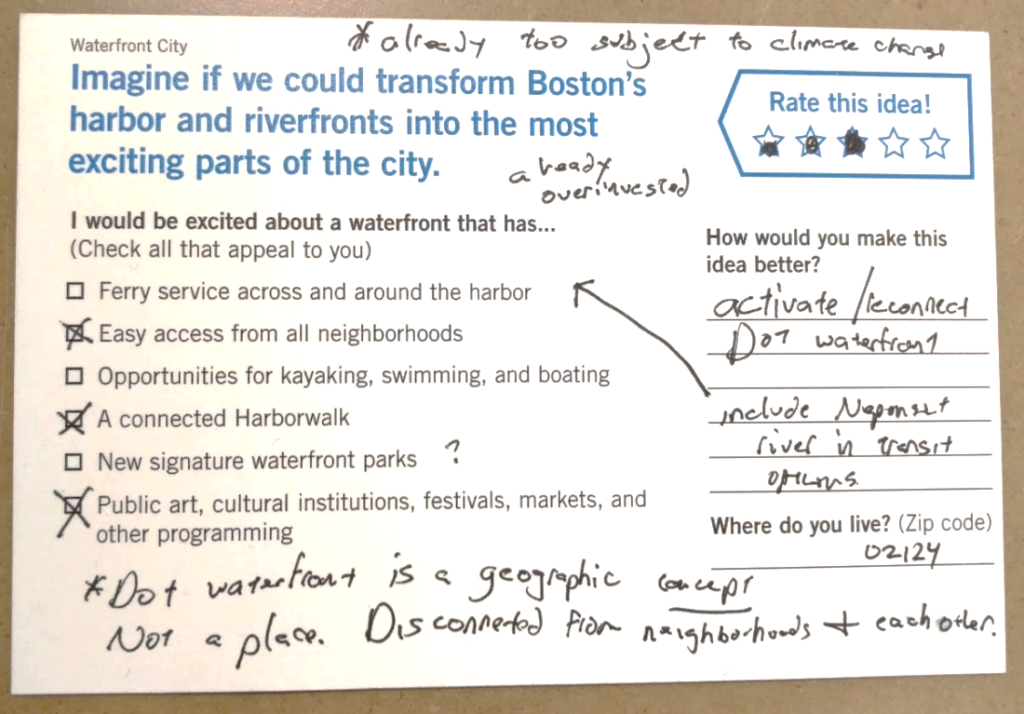 Waterfront City
* already too subject to climate change
Imagine if we could transform Boston's
harbor and riverfronts into the most
exciting parts of the city.
already
overinvested
Rate this idea!
I would be excited about a waterfront that has...
(Check all that appeal to you)
Ferry service across and around the harbor
Easy access from all neighborhoods
Opportunities for kayaking, swimming, and boating
A connected Harborwalk
New signature waterfront parks ?
Public art, cultural institutions, festivals, markets, and
other programming
How would you make this
idea better?
activate / reconnect
Dot waterfront
include Neponset
river in transit
options.
Where do you live? (Zip code)
02124
*Dot waterfront is a geographic concept
Not a place. Disconnected from neighborhoods + each other.